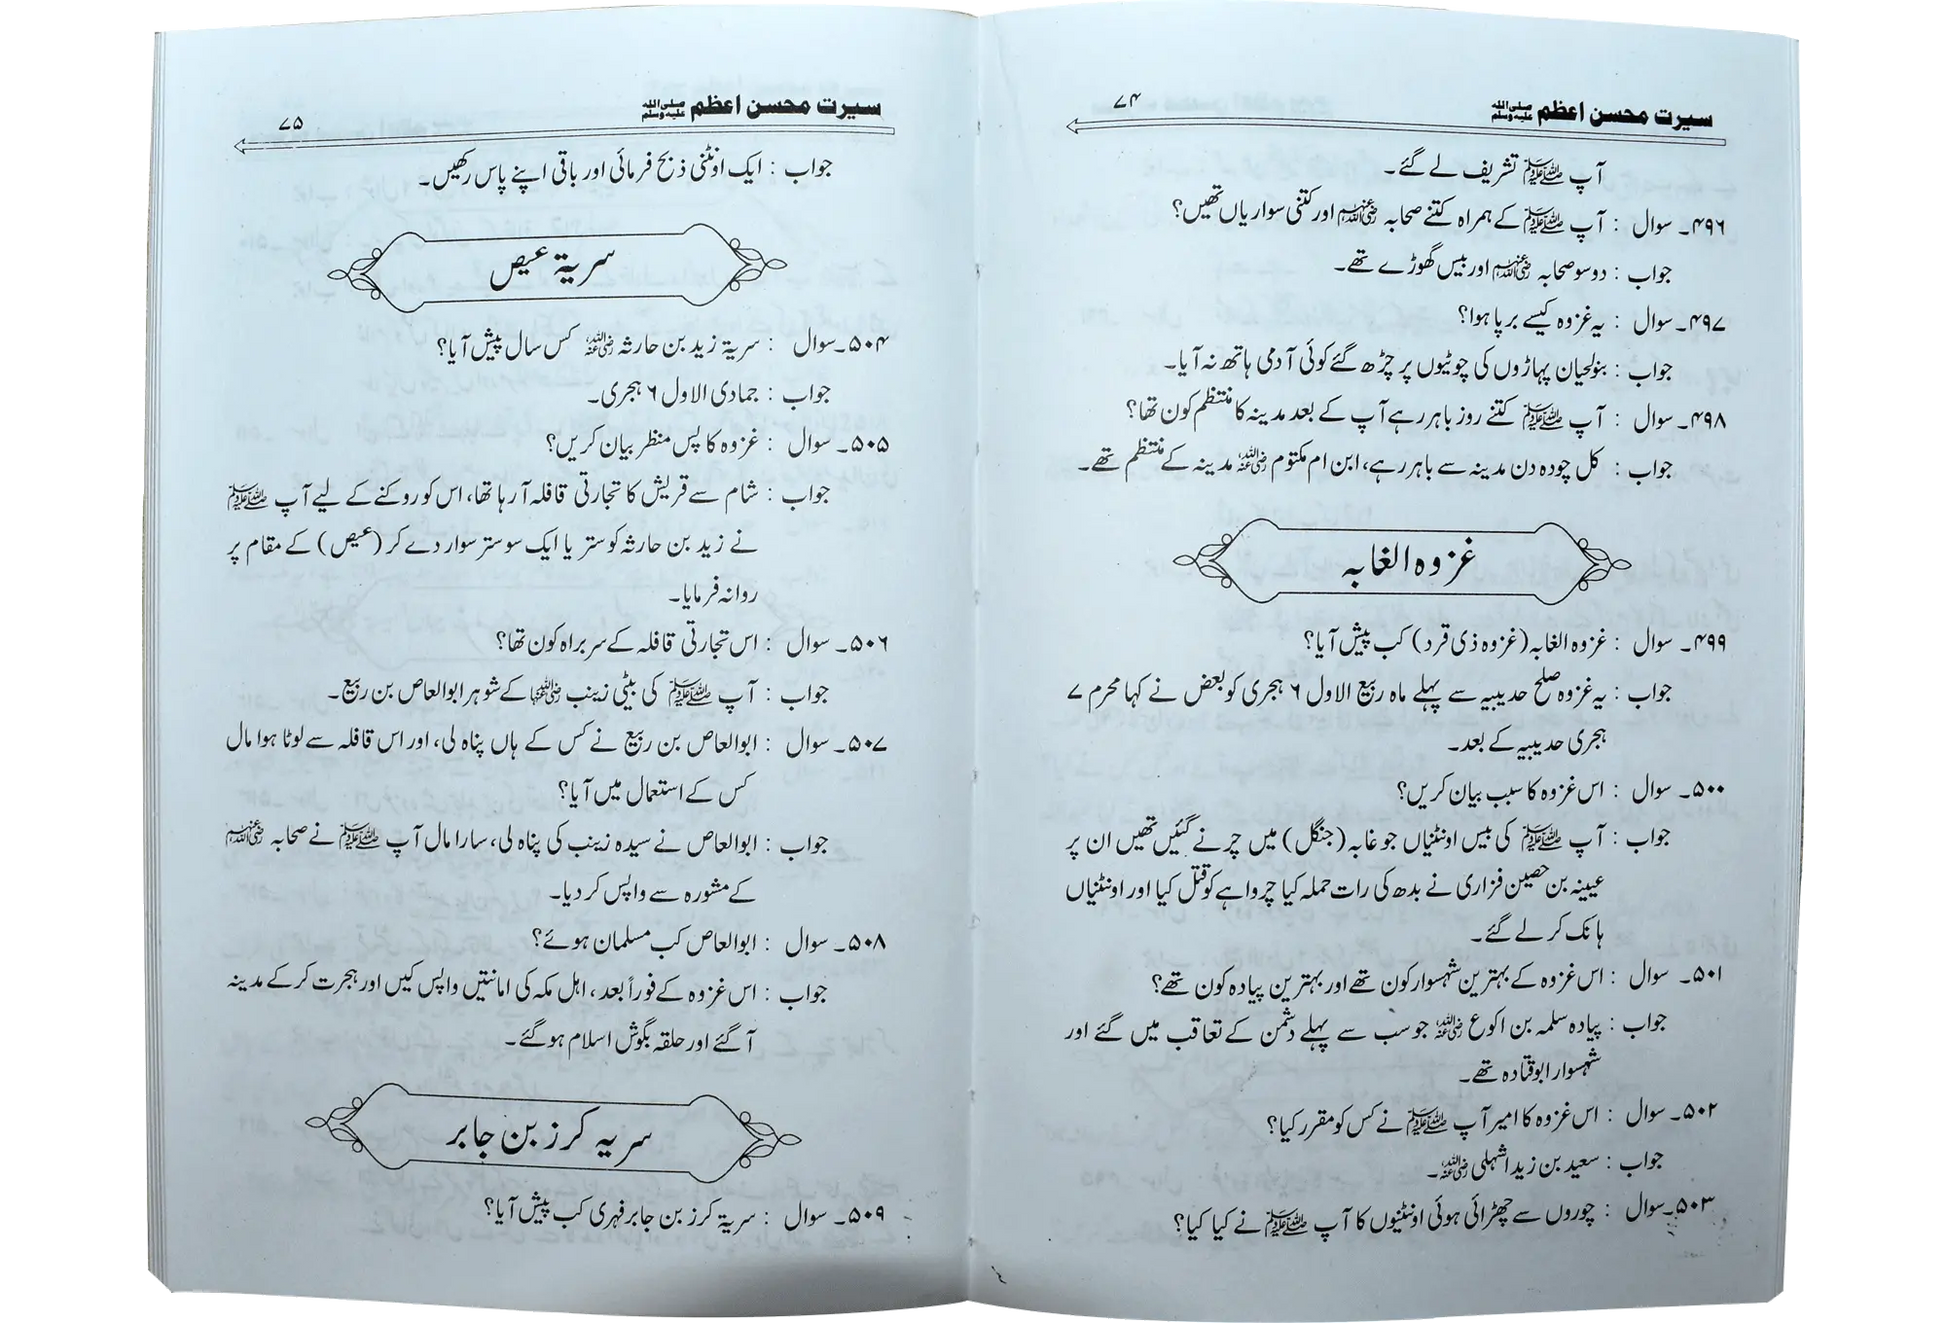 سیرت محسن اعظم ﷺ ۷۴
آپ ﷺ تشریف لے گئے۔
۴۹۶۔ سوال : آپ ﷺ کے ہمراہ کتنے صحابہ رضی اللہ عنہم اور کتنی سواریاں تھیں؟
جواب : دو سو صحابہ رضی اللہ عنہم اور بیس گھوڑے تھے۔
۴۹۷۔ سوال : یہ غزوہ کیسے برپا ہوا؟
جواب : بنولحیان پہاڑوں کی چوٹیوں پر چڑھ گئے کوئی آدمی ہاتھ نہ آیا۔
۴۹۸۔ سوال : آپ ﷺ کتنے روز باہر رہے آپ کے بعد مدینہ کا منتظم کون تھا؟
جواب : کل چودہ دن مدینہ سے باہر رہے، ابن ام مکتوم رضی اللہ عنہ مدینہ کے منتظم تھے۔
غزوہ الغابہ
۴۹۹۔ سوال : غزوہ الغابہ (غزوہ ذی قرد) کب پیش آیا؟
جواب : یہ غزوہ صلح حدیبیہ سے پہلے ماہ ربیع الاول ۶ ہجری کو بعض نے کہا محرم ۷
ہجری حدیبیہ کے بعد۔
۵۰۰۔ سوال : اس غزوہ کا سبب بیان کریں؟
جواب : آپ ﷺ کی بیس اونٹنیاں جو غابہ (جنگل) میں چرنے گئیں تھیں ان پر
عیینہ بن حصین فزاری نے بدھ کی رات حملہ کیا چرواہے کو قتل کیا اور اونٹنیاں
ہانک کر لے گئے۔
۵۰۱۔ سوال : اس غزوہ کے بہترین شہسوار کون تھے اور بہترین پیادہ کون تھے؟
جواب : پیادہ سلمہ بن اکوع رضی اللہ عنہ جو سب سے پہلے دشمن کے تعاقب میں گئے اور
شہسوار ابو قتادہ تھے۔
۵۰۲۔ سوال : اس غزوہ کا امیر آپ ﷺ نے کس کو مقرر کیا؟
جواب : سعید بن زید اشہلی رضی اللہ عنہ۔
۵۰۳۔ سوال : چوروں سے چھڑائی ہوئی اونٹنیوں کا آپ ﷺ نے کیا کیا؟
سیرت محسن اعظم ﷺ ۷۵
جواب : ایک اونٹنی ذبح فرمائی اور باقی اپنے پاس رکھیں۔
سریۃ عیص
۵۰۴۔ سوال : سریۃ زید بن حارثہ رضی اللہ عنہ کس سال پیش آیا؟
جواب : جمادی الاول ۶ ہجری۔
۵۰۵۔ سوال : غزوہ کا پس منظر بیان کریں؟
جواب : شام سے قریش کا تجارتی قافلہ آ رہا تھا، اس کو روکنے کے لیے آپ ﷺ
نے زید بن حارثہ کو ستر یا ایک سو ستر سوار دے کر (عیص) کے مقام پر
روانہ فرمایا۔
۵۰۶۔ سوال : اس تجارتی قافلہ کے سربراہ کون تھا؟
جواب : آپ ﷺ کی بیٹی زینب رضی اللہ عنہا کے شوہر ابوالعاص بن ربیع۔
۵۰۷۔ سوال : ابوالعاص بن ربیع نے کس کے ہاں پناہ لی، اور اس قافلہ سے لوٹا ہوا مال
کس کے استعمال میں آیا؟
جواب : ابوالعاص نے سیدہ زینب کی پناہ لی، سارا مال آپ ﷺ نے صحابہ رضی اللہ عنہم
کے مشورہ سے واپس کر دیا۔
۵۰۸۔ سوال : ابوالعاص کب مسلمان ہوئے؟
جواب : اس غزوہ کے فوراً بعد، اہل مکہ کی امانتیں واپس کیں اور ہجرت کر کے مدینہ
آ گئے اور حلقہ بگوش اسلام ہو گئے۔
سریہ کرز بن جابر
۵۰۹۔ سوال : سریۃ کرز بن جابر فہری کب پیش آیا؟